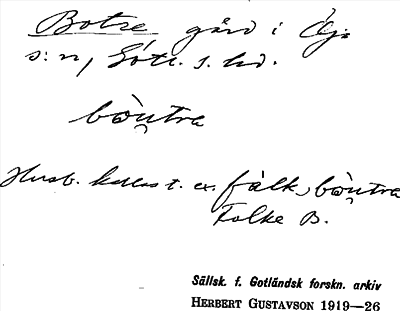 Botre gård i Öja
s:n, Gotl. s. hd.
bòṷtra
Husb. kallas t. ex. fálk bòṷtra
Folke B.
Sällsk. f. Gotländsk forskn. arkiv
HERBERT GUSTAVSON 1919—26